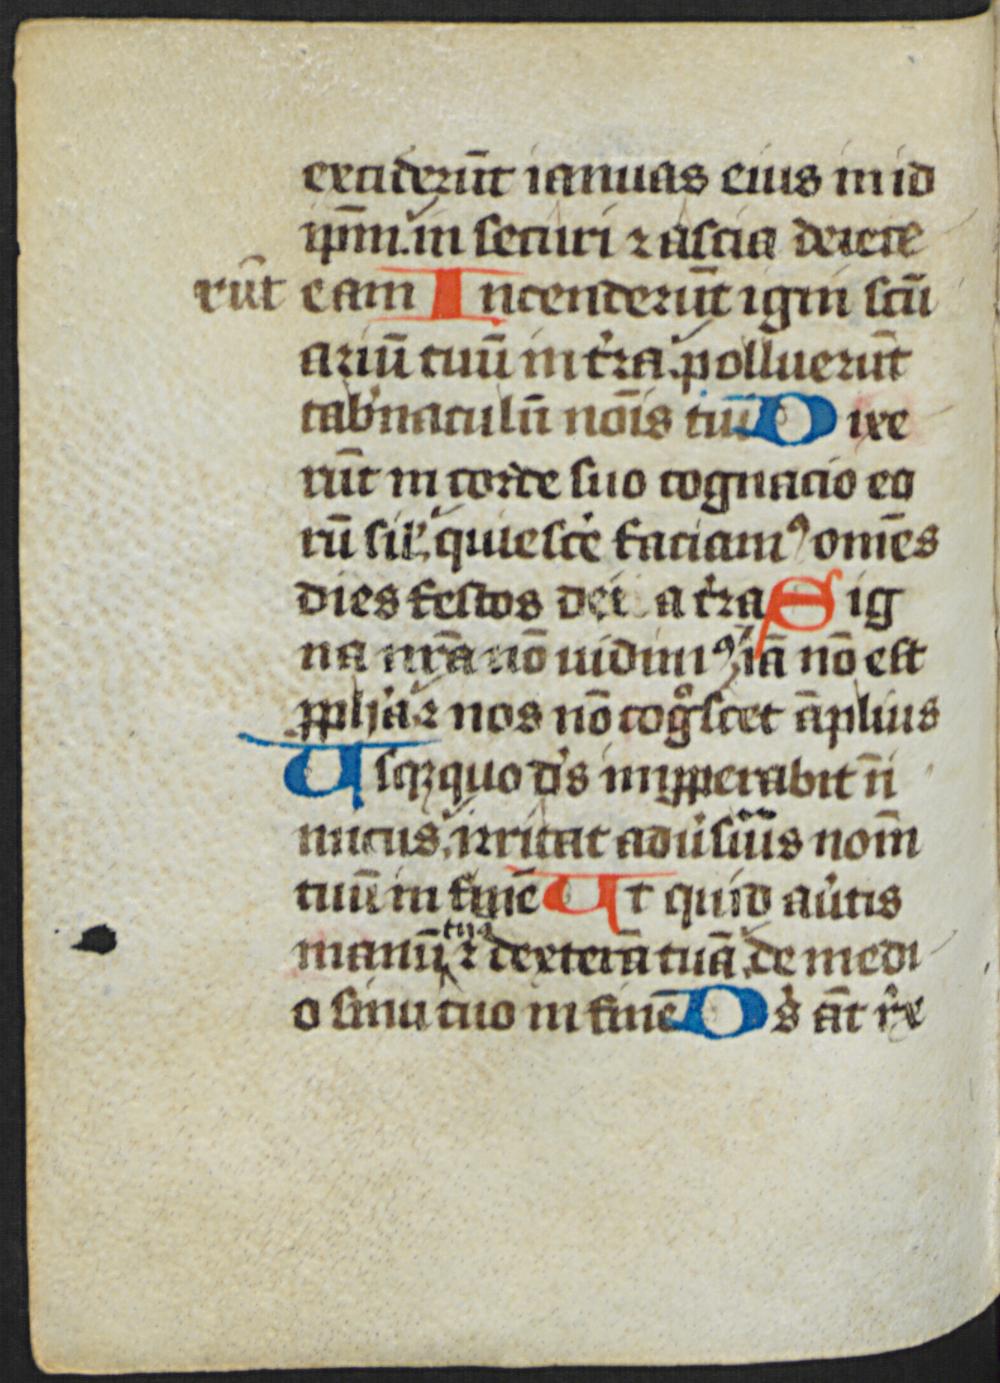 exciderūt ianuas eius in id
ip̄m. in securi ⁊ ascia deiece
rūt eam Incenderūt igni scū
ariū tuū in t̾ra. polluerūt
tab̾naculū nōis tui Dixe
rūt in corde suo cognacio eo
rū sil̾ quiesc̾e faciamꝰ om̄es
dies festos dei a t̾ra Sig
na nr̄a nō uidimꝰ iā nō est
ꝓph̾a ⁊ nos nō cog̊scet āplius
Usqꝫquo d̾s imꝓperabit īi
micus irritat adu̾sariꝰ nom̄
tuū in finē Ut quid au̾tis
manū tuā ⁊ dexterā tuā de medi
o sinu tuo in finē D̾s āt rex